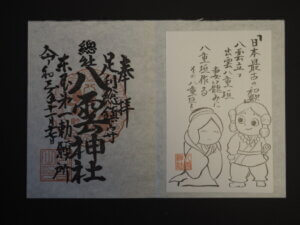 奉拝
足利総鎮守
總社
八雲神社
東国第一勅願所
「日本最古の和歌」
八雲立つ
出雲八重垣
妻籠みに
八重垣作る
その八重垣を